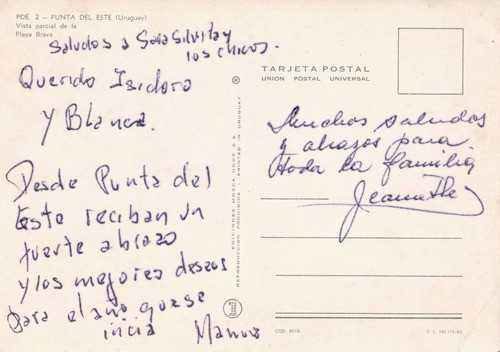 PDE 2 - PUNTA DEL ESTE (Uruguay)
Vista parcial de la
Playa Brava
Saludos a Sara Silvita y
los chicos.
Querido Isidoro
y Blanca.
Desde Punta del
Este reciban un
fuerte abrazo
y los mejores deseos
para el año que se
inicia
EDICIONES MOSCA HNOS. S.A.
REPRODUCCION PROHIBIDA - PRINTED IN URUGUAY
TARJETA POSTAL
UNION POSTAL UNIVERSAL
Muchos saludos
y abrazos para
toda la familia
COD. 8016